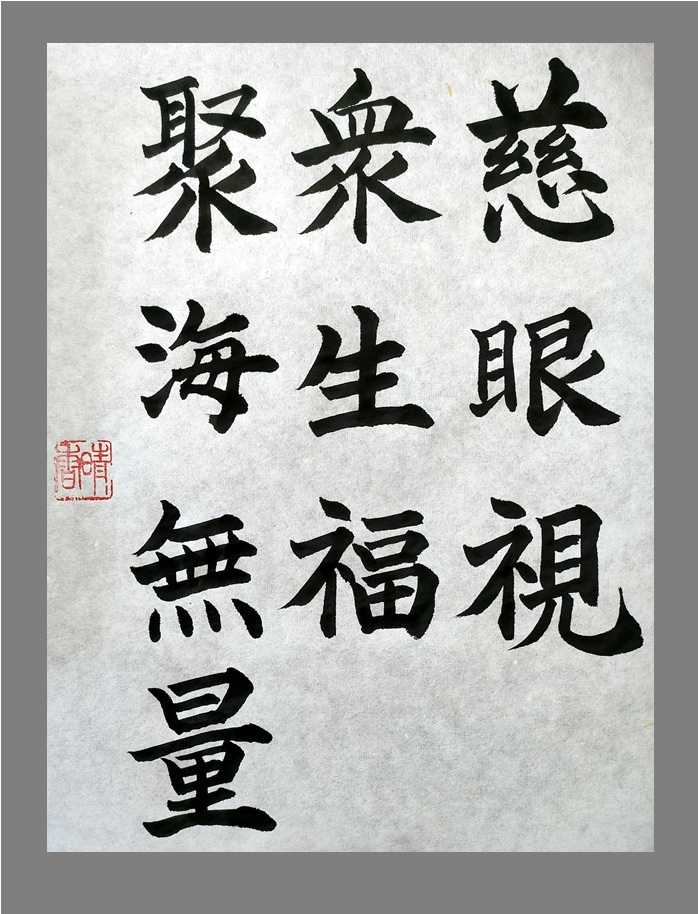 慈眼視
衆生福
聚海無量